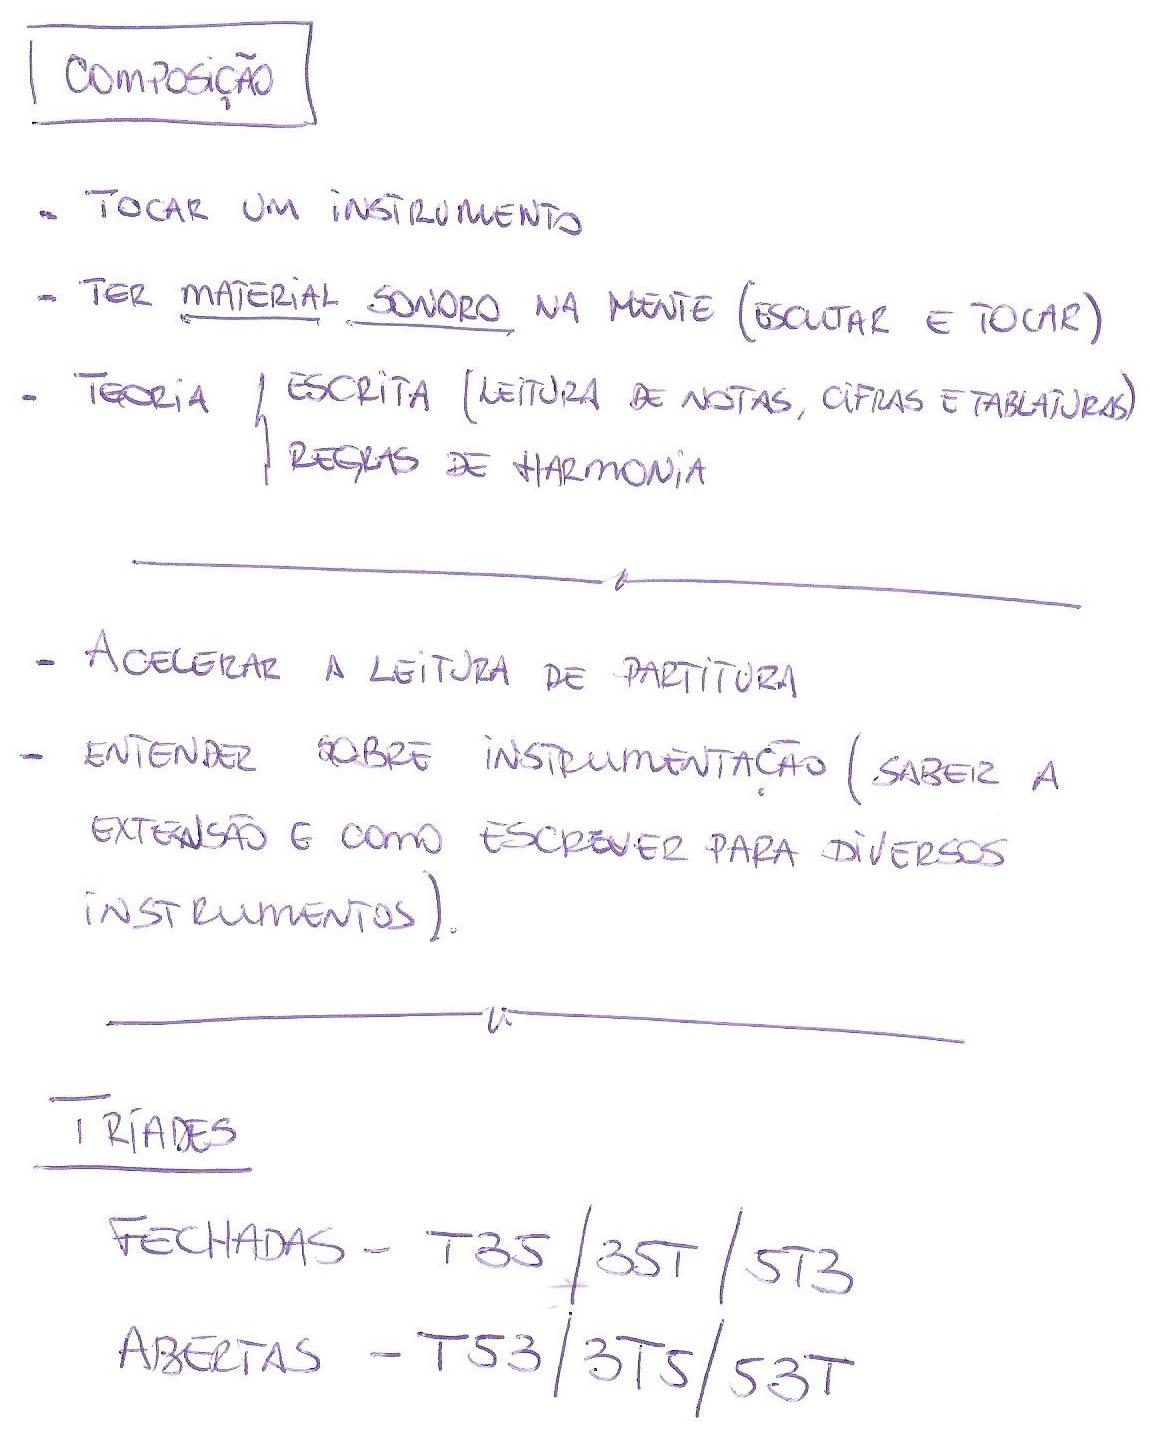 COMPOSIÇÃO
- TOCAR UM INSTRUMENTO
- TER MATERIAL SONORO NA MENTE (ESCUTAR E TOCAR)
- TEORIA { ESCRITA (LEITURA DE NOTAS, CIFRAS E TABLATURAS)
REGRAS DE HARMONIA
- ACELERAR A LEITURA DE PARTITURA
- ENTENDER SOBRE INSTRUMENTAÇÃO (SABER A
EXTENSÃO E COMO ESCREVER PARA DIVERSOS
INSTRUMENTOS).
TRÍADES
FECHADAS - T35 / 35T / 5T3
ABERTAS - T53 / 3T5 / 53T